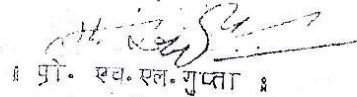 ॥ प्रो. एच. एल. गुप्ता ॥